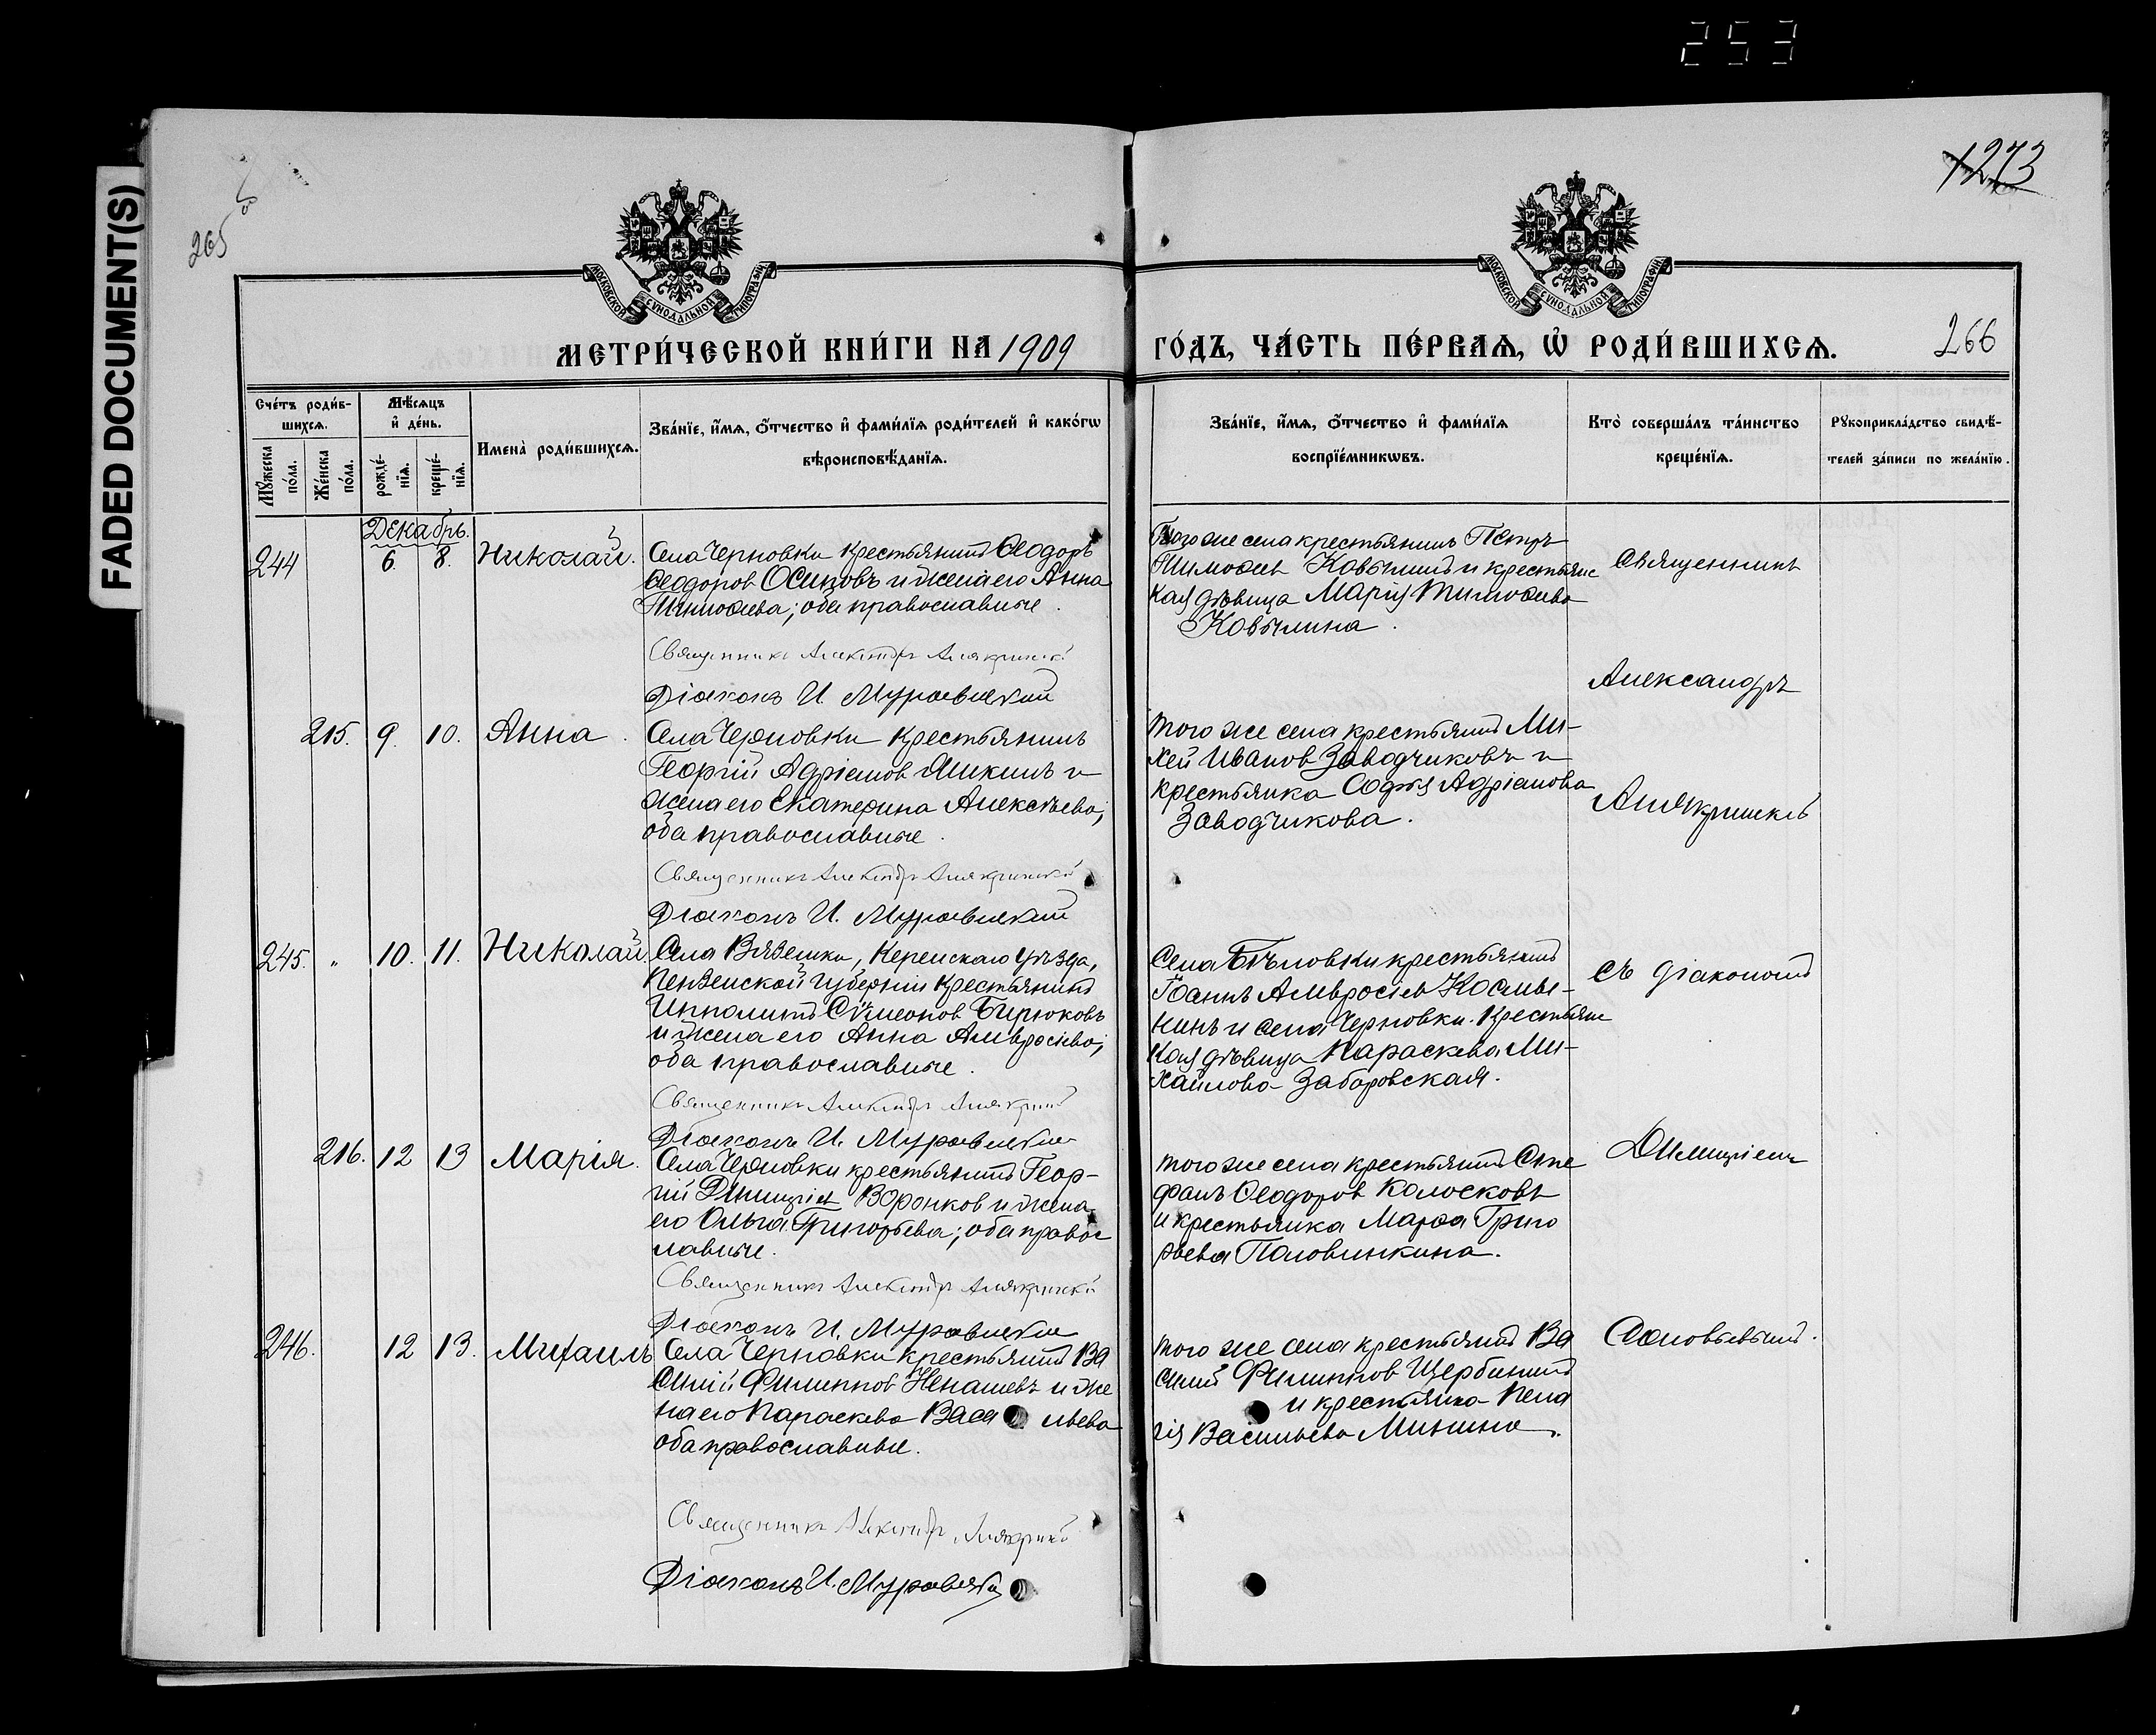 253
FADED DOCUMENT(S)
265
1273
МОСКОВСКОЙ СѴНОДАЛЬНОЙ ТИПОГРАФІИ
МОСКОВСКОЙ СѴНОДАЛЬНОЙ ТИПОГРАФІИ
МЕТРИ́ЧЕСКОЙ КНИ́ГИ НА 1909
ГО́ДЪ, ЧА́СТЬ ПЕ́РВАѦ, Ѡ҆ РОДИ́ВШИХСѦ.
266
Сче́тъ роди́в-
шихсѧ.
Мꙋ́жеска
по́ла.
Же́нска
по́ла.
Мѣ́сѧцъ
и҆ де́нь.
рожде́-
нїѧ.
креще́-
нїѧ.
Имена̀ роди́вшихсѧ.
Зва́нїе, и҆́мѧ, ѻ҆́тчество и҆ фами́лїѧ роди́телей и҆ како́гѡ
вѣроисповѣ́данїѧ.
Зва́нїе, и҆́мѧ, ѻ҆́тчество и҆ фами́лїѧ
воспрїе́мникѡвъ.
Кто̀ соверша́лъ та́инство
креще́нїѧ.
Рꙋкоприкла́дство свидѣ́-
телей за́писи по жела́нїю.
Декабрь.
244 6. 8. Николай.
Села Черновки крестьянинъ Ѳеодоръ
Ѳеодоров Осиповъ и жена его Анна
Тимоѳеева; оба православные.
Священникъ Александръ Алякринскій
Діаконъ И. Муравьевскій
Того же села крестьянинъ Петръ
Тимоѳеев Ковылинъ и крестьянс
кая дѣвица Марія Тимоѳеева
Ковылина.
Священникъ
Александръ
215. 9. 10. Анна.
Села Черновки крестьянинъ
Георгій Адріанов Яшкинъ и
жена его Екатерина Алексѣева;
оба православные.
Священникъ Александръ Алякринскій
Діаконъ И. Муравьевскій
того же села крестьянинъ Ми-
хей Иванов Заводчиковъ и
крестьянка Софія Адріанова
Заводчикова.
Алякринскій
245. „ 10. 11. Николай.
Села Вяземки, Керенскаго уѣзда,
Пензенской губерніи крестьянинъ
Ипполитъ Сѵмеонов Бирюковъ
и жена его Анна Амвросіева;
оба православные.
Священникъ Александръ Алякринскій
Діаконъ И. Муравьевскій
Села Бѣловки крестьянинъ
Іоаннъ Амвросіев Космы-
нинъ и села Черновки крестьянс
кая дѣвица Параскева Ми-
хайлова Заборовская.
съ діакономъ
216. 12 13 Марія.
Села Черновки крестьянинъ Геор-
гій Димитріев Воронков и жена
его Ольга Григорьева; оба правос
лавные.
Священникъ Александръ Алякринскій
Діаконъ И. Муравьевскій
того же села крестьянинъ Сте
фанъ Ѳеодоров Колосковъ
и крестьянка Марѳа Григо
рьева Половинкина.
Димитріемъ
246. 12 13. Михаилъ
Села Черновки крестьянинъ Ва
силій Филиппов Ненашевъ и же
на его Параскева Васильева
оба православные.
Священникъ Александръ Алякринскій
Діаконъ И. Муравьевскій
того же села крестьянинъ Ва
силий Филиппов Щербининъ
и крестьянка Пела
гія Васильева Минина.